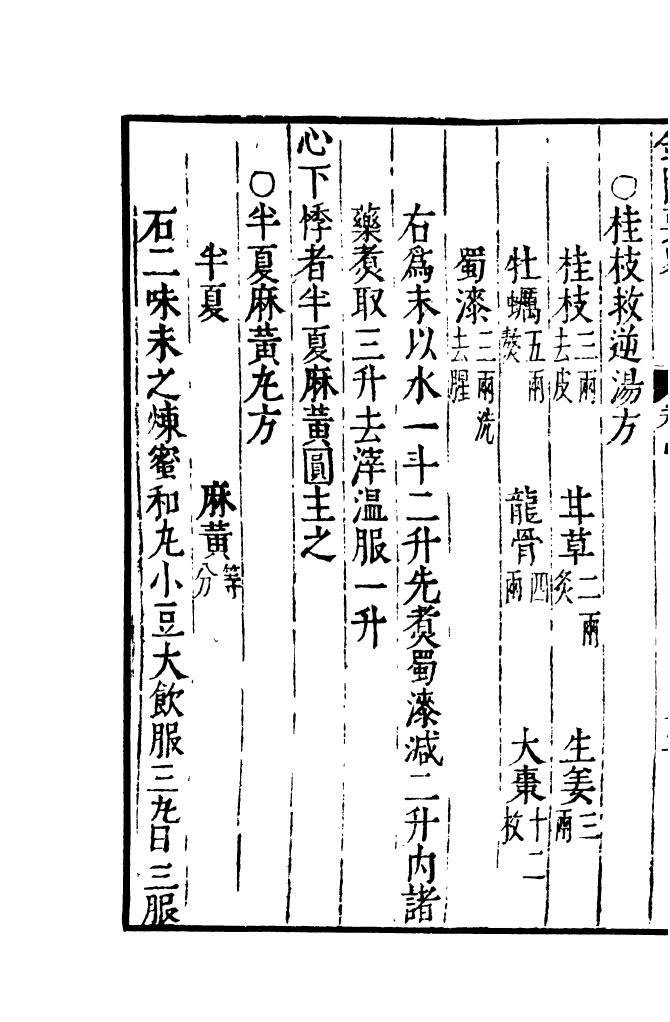 ○桂枝救逆湯方
桂枝三兩去皮 甘草二兩炙 生姜三兩
牡蠣五兩熬 龍骨四兩 大棗十二枚
蜀漆三兩洗去腥
右為末以水一斗二升先煑蜀漆減二升內諸
藥煑取三升去滓温服一升
心下悸者半夏麻黃圓主之
○半夏麻黃丸方
半夏 麻黃等分
石二味末之煉蜜和丸小豆大飲服三丸日三服